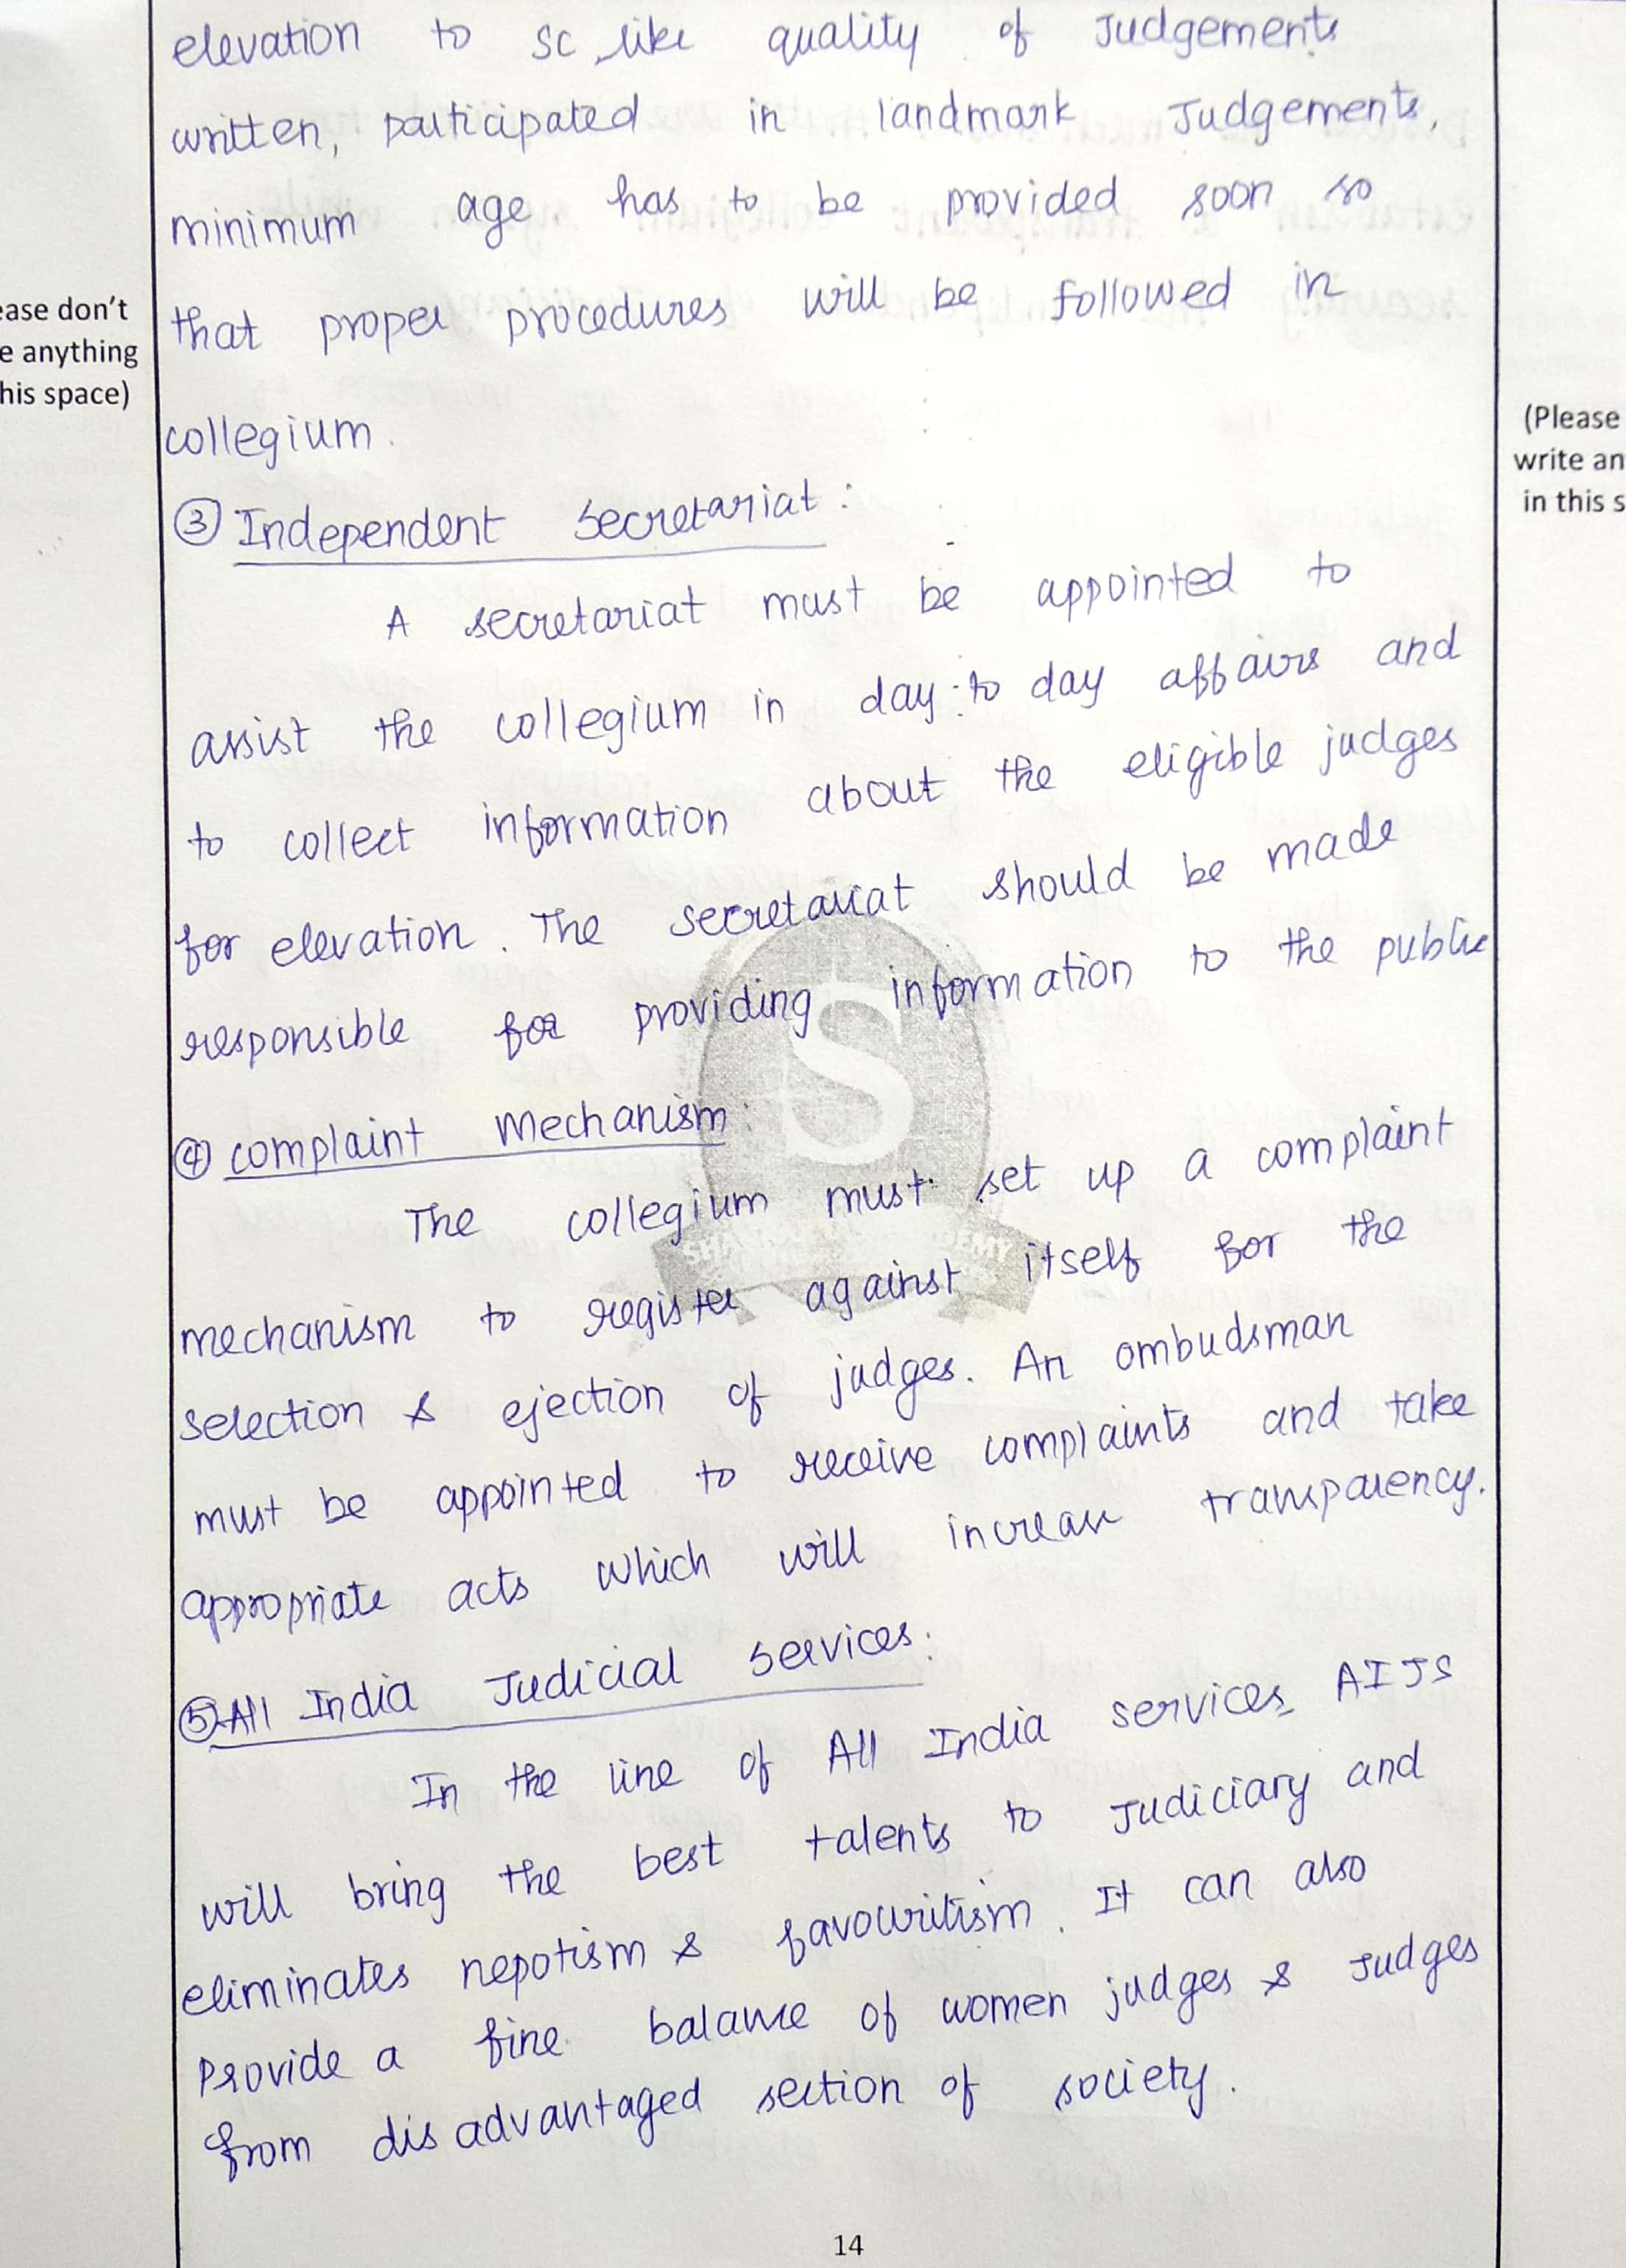 elevation to SC, like quality of Judgements
written, participated in landmark Judgements,
minimum age has to be provided soon so
that proper procedures will be followed in
collegium.
③ Independent Secretariat:
A secretariat must be appointed to
assist the collegium in day-to day affairs and
to collect information about the eligible judges
for elevation. The secretariat should be made
responsible for providing information to the public
④ complaint Mechanism:
The collegium must set up a complaint
mechanism to register against itself for the
selection & ejection of judges. An ombudsman
must be appointed to receive complaints and take
appropriate acts which will increase transparency.
⑤ All India Judicial Services:
In the line of All India services, AIJS
will bring the best talents to Judiciary and
eliminates nepotism & favouritism. It can also
Provide a fine balance of women judges & Judges
from disadvantaged section of society.
14
ease don't
e anything
his space)
(Please
write an
in this s
S